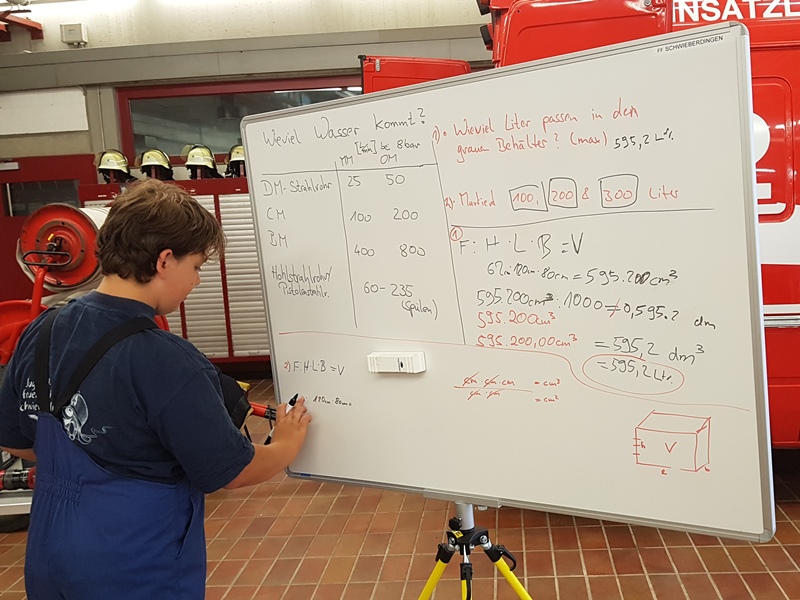 NSATZL
FF SCHWIEBERDINGEN
Wieviel Wasser kommt?
[L/min] bei 8bar
MM OM
DM-Strahlrohr 25 50
CM 100 200
BM 400 800
Hohlstrahlrohr/
Pistolenstrahlr. 60-235
(Spülen)
1) • Wieviel Liter passen in den
grauen Behälter? (max) 595,2 Ltr.
2) • Markiert 100, 200 & 300 Liter
①
F: H·L·B=V
62cm·120cm·80cm=595.200cm³
595200cm³:1000≠0,595.2 dm
595.200cm³
595.200,00cm³ =595,2 dm³
=595,2 Ltr.
2) F:H·L·B=V
120cm·80cm=
cm·cm·cm =cm³
cm·cm =cm²
h V
l b